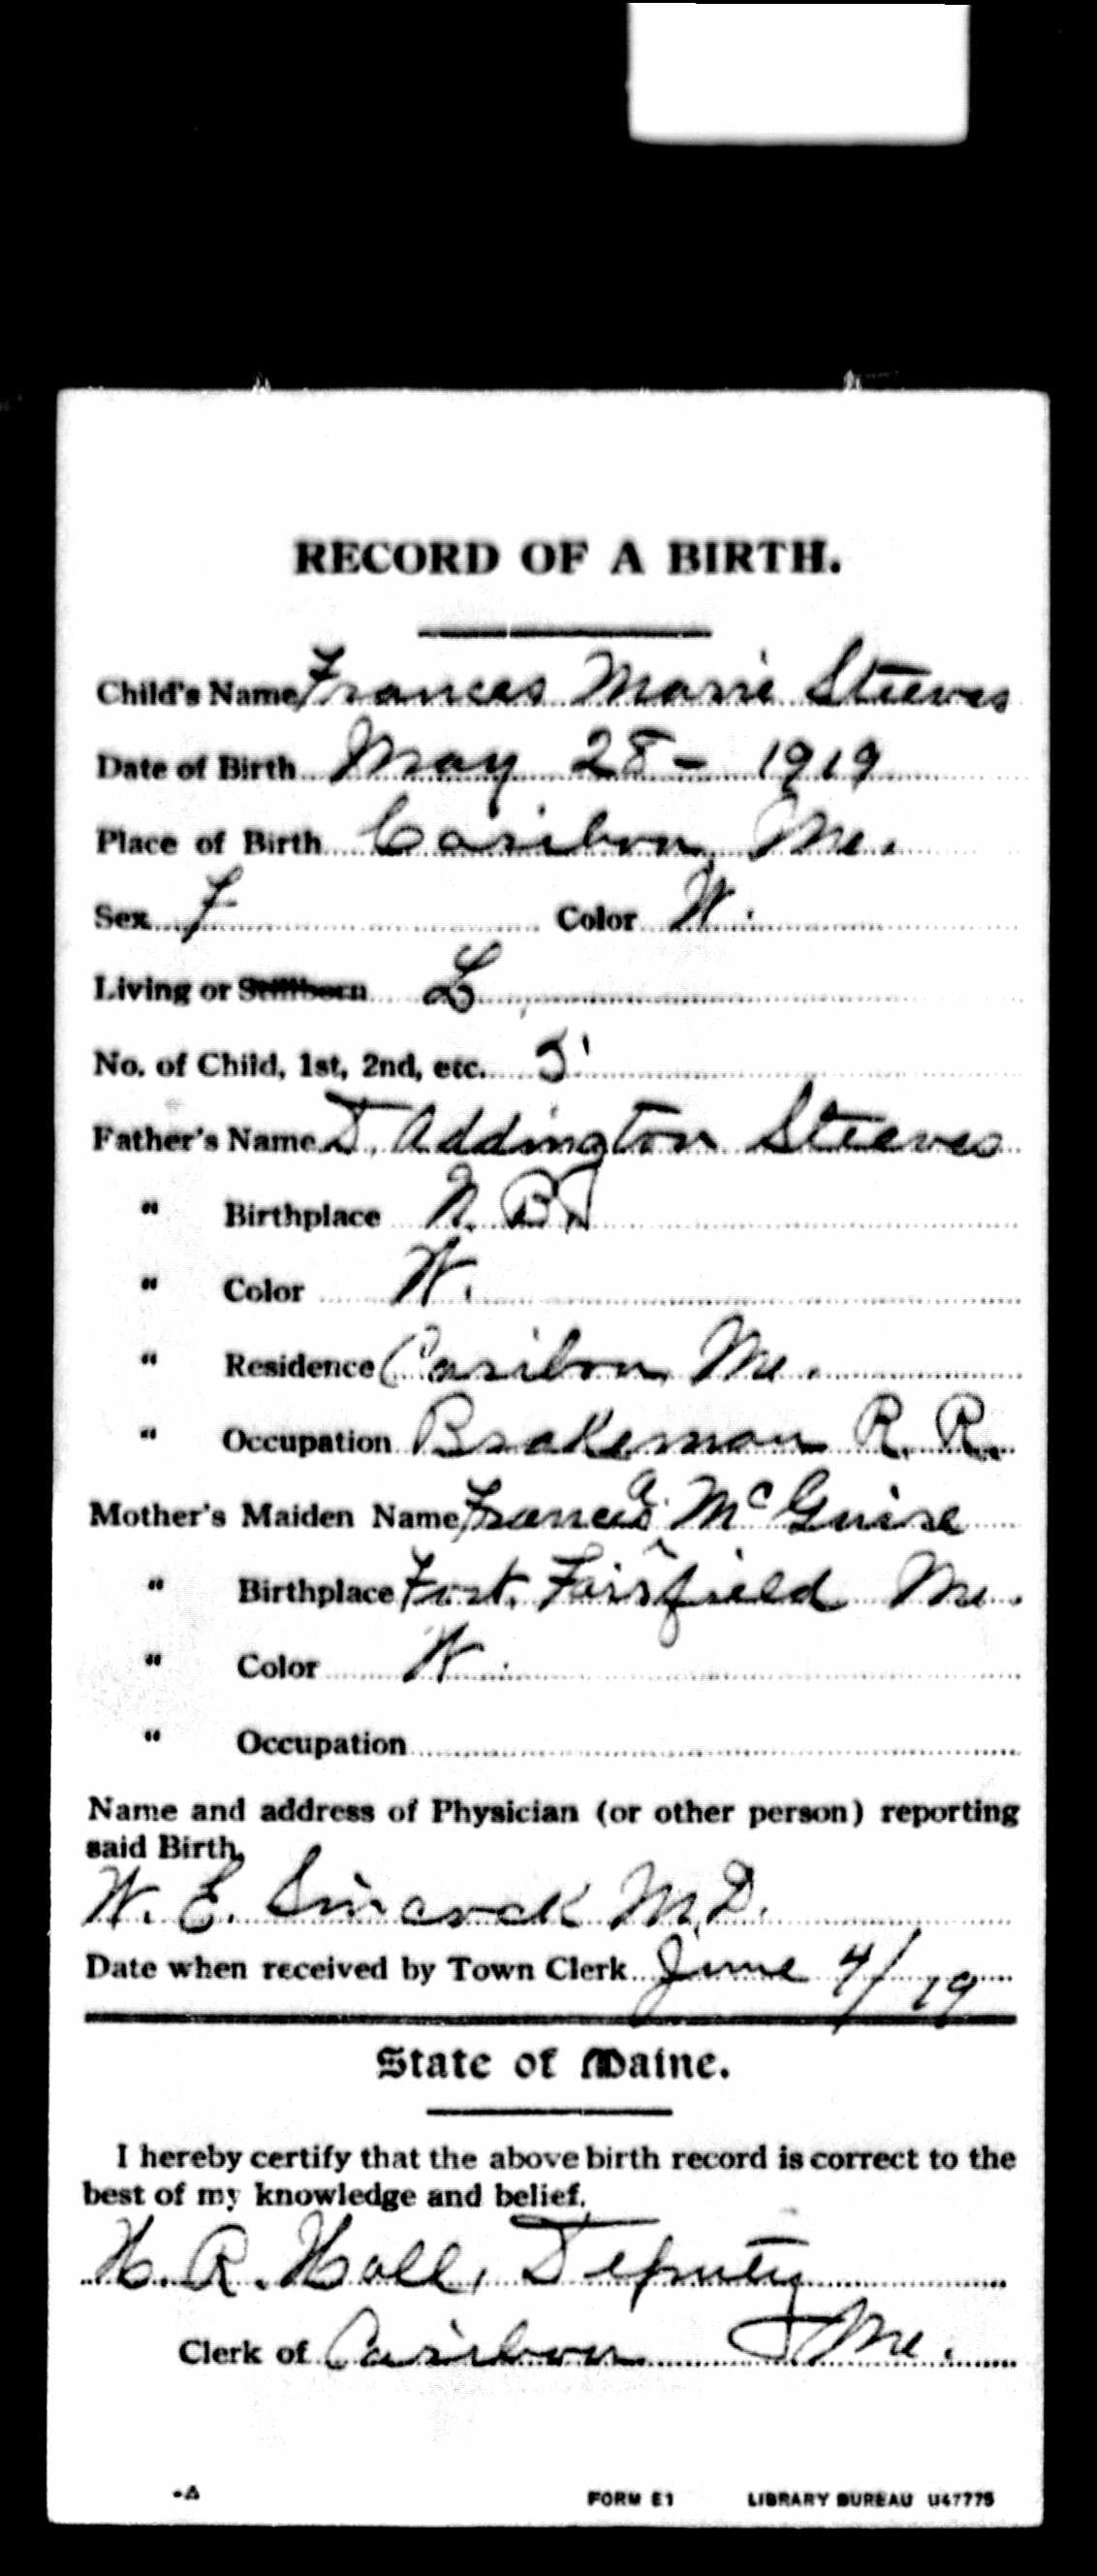 RECORD OF A BIRTH.
Child's Name Frances Marie Steeves
Date of Birth May 28 - 1919
Place of Birth Caribou, Me.
Sex F Color W.
Living or Stillborn L
No. of Child, 1st, 2nd, etc. 5
Father's Name T. Addington Steeves
" Birthplace N. B.
" Color W.
" Residence Caribou, Me.
" Occupation Brakeman R. R.
Mother's Maiden Name Frances A. McGuire
" Birthplace Fort Fairfield Me.
" Color W.
" Occupation
Name and address of Physician (or other person) reporting
said Birth,
W. E. Sincock M.D.
Date when received by Town Clerk June 4/19
State of Maine.
I hereby certify that the above birth record is correct to the
best of my knowledge and belief.
H. R. Hall, Deputy
Clerk of Caribou Me.
FORM E1 LIBRARY BUREAU U47775